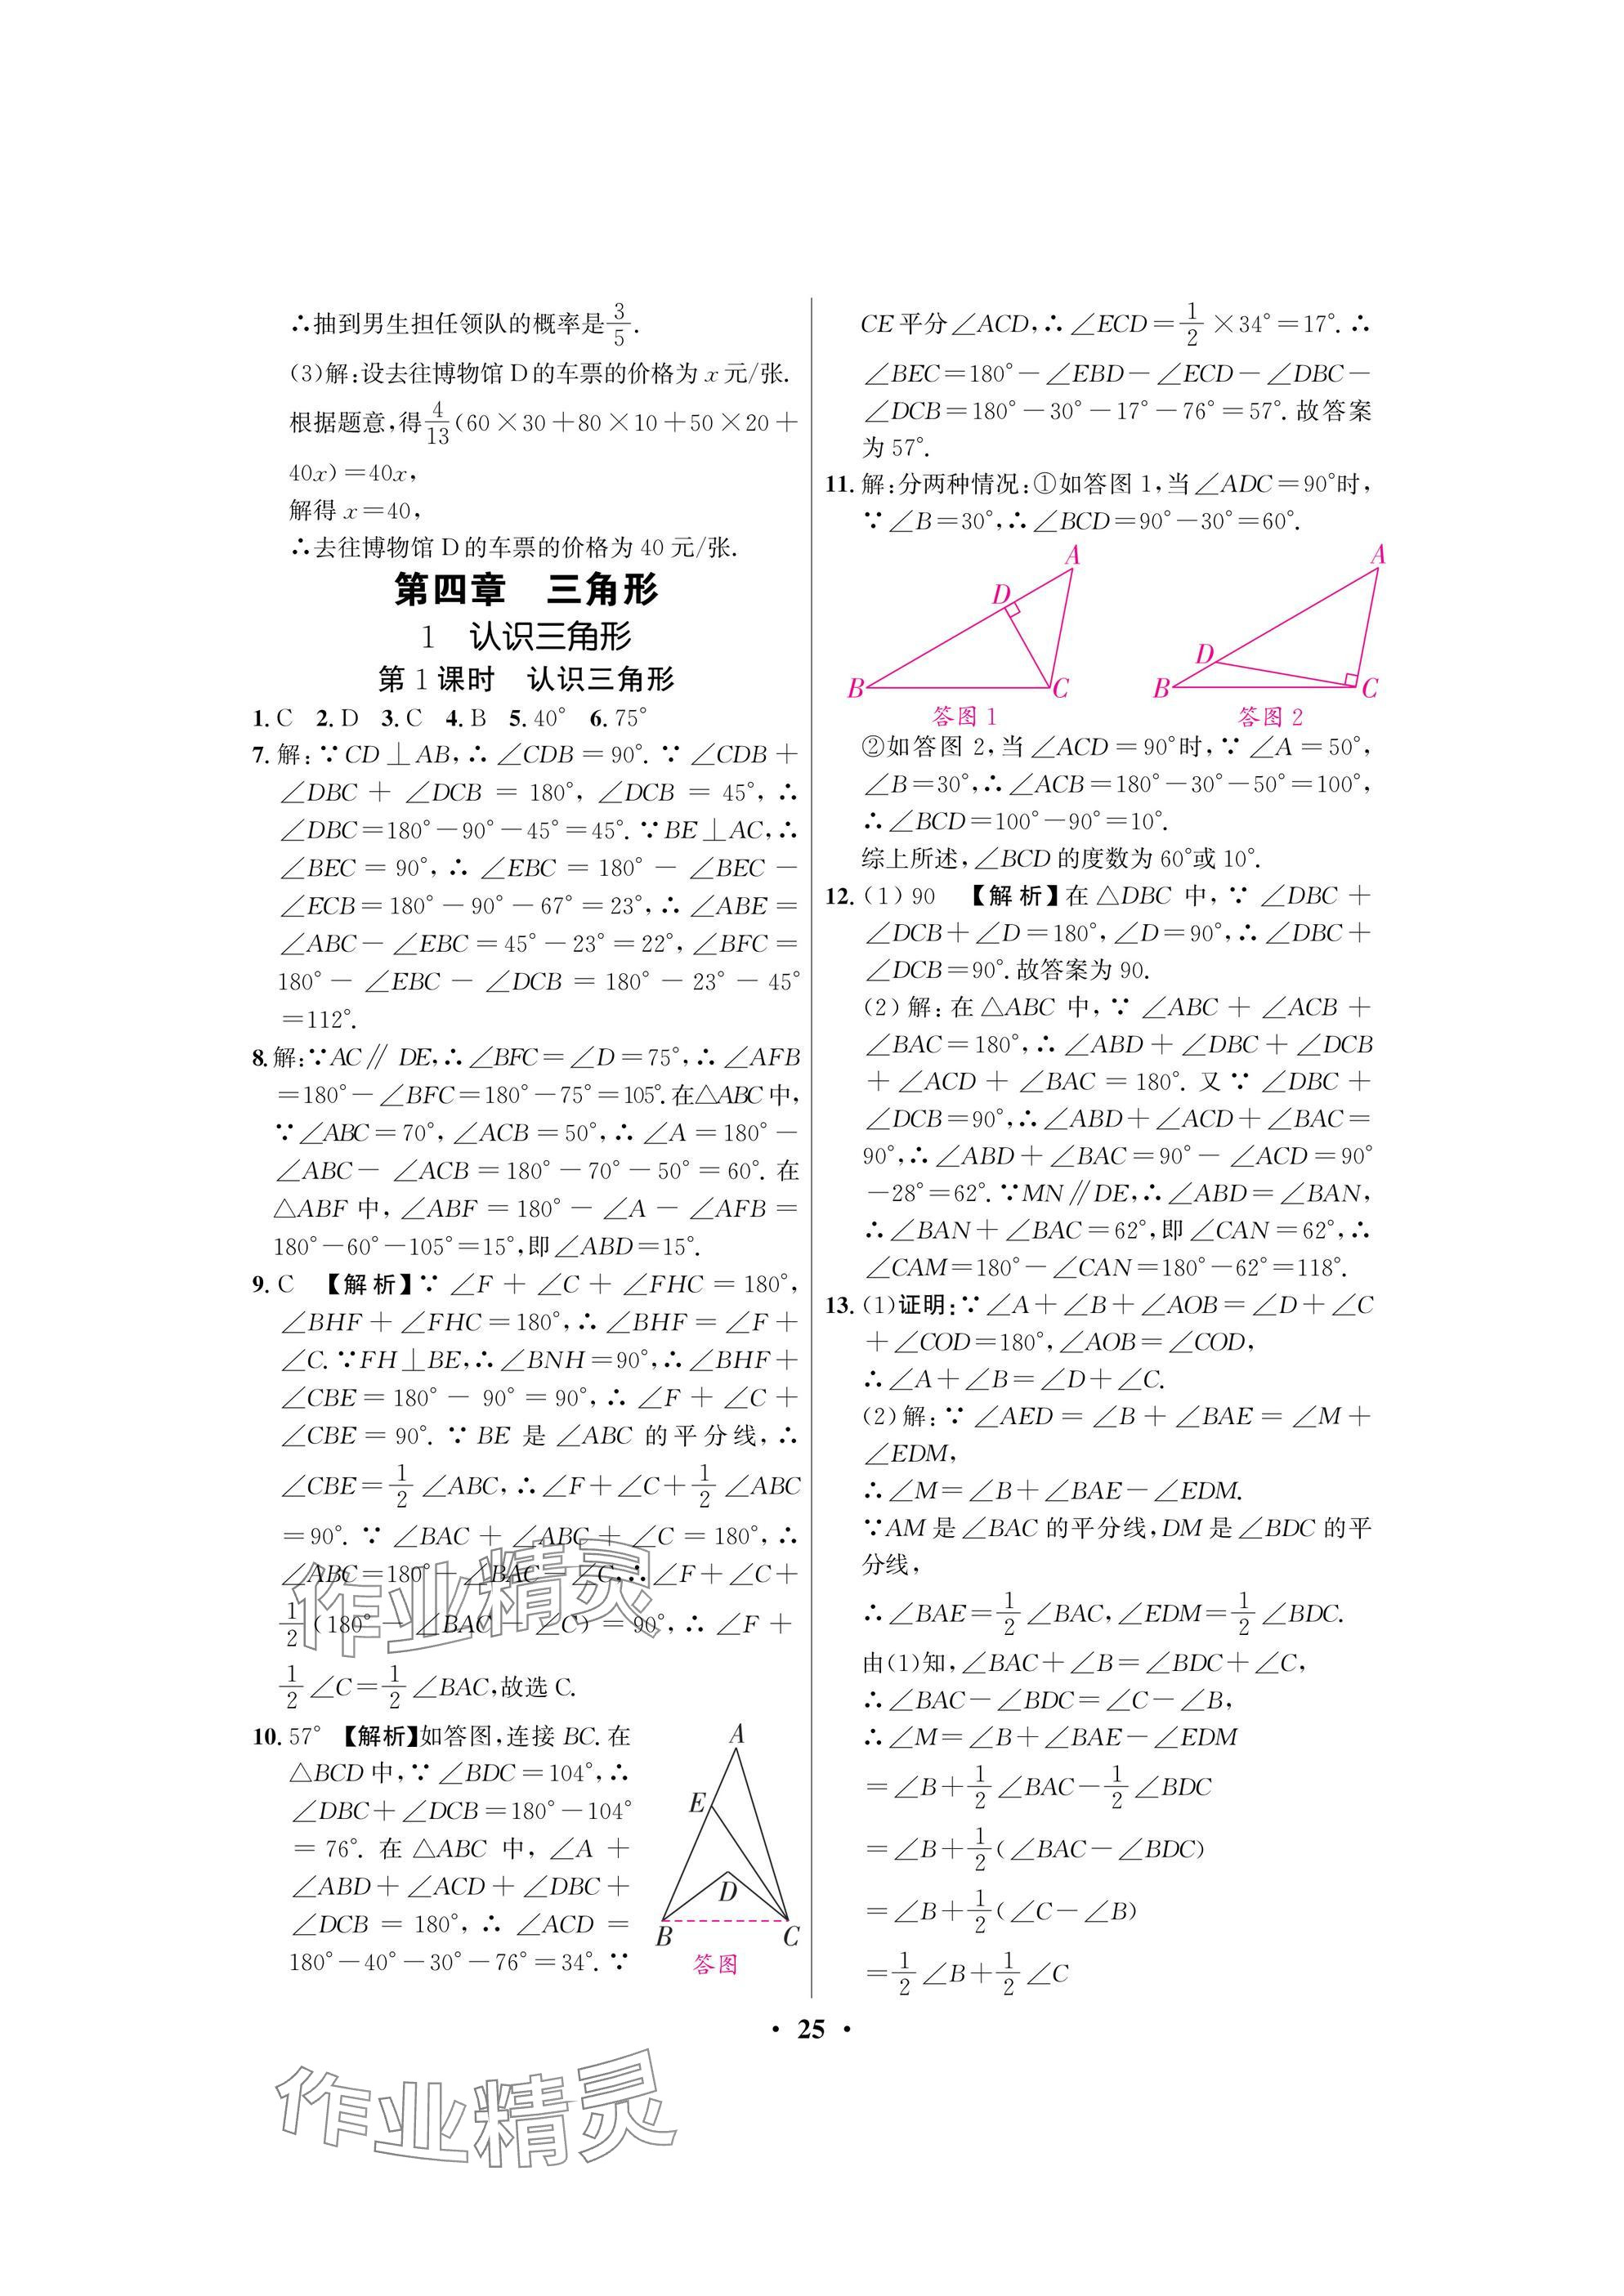 ∴抽到男生担任领队的概率是3/5.
(3)解:设去往博物馆 D 的车票的价格为 x 元/张.
根据题意,得4/13(60×30+80×10+50×20+
40x)=40x,
解得 x=40,
∴去往博物馆 D 的车票的价格为 40 元/张.
第四章 三角形
1 认识三角形
第 1 课时 认识三角形
1. C 2. D 3. C 4. B 5. 40° 6. 75°
7. 解:∵CD⊥AB,∴∠CDB=90°. ∵∠CDB+
∠DBC+∠DCB=180°,∠DCB=45°,∴
∠DBC=180°-90°-45°=45°. ∵BE⊥AC,∴
∠BEC=90°,∴∠EBC=180°-∠BEC-
∠ECB=180°-90°-67°=23°,∴∠ABE=
∠ABC-∠EBC=45°-23°=22°,∠BFC=
180°-∠EBC-∠DCB=180°-23°-45°
=112°.
8. 解:∵AC∥DE,∴∠BFC=∠D=75°,∴∠AFB
=180°-∠BFC=180°-75°=105°. 在△ABC中,
∵∠ABC=70°,∠ACB=50°,∴∠A=180°-
∠ABC-∠ACB=180°-70°-50°=60°. 在
△ABF 中,∠ABF=180°-∠A-∠AFB=
180°-60°-105°=15°,即∠ABD=15°.
9. C 【解析】∵∠F+∠C+∠FHC=180°,
∠BHF+∠FHC=180°,∴∠BHF=∠F+
∠C. ∵FH⊥BE,∴∠BNH=90°,∴∠BHF+
∠CBE=180°-90°=90°,∴∠F+∠C+
∠CBE=90°. ∵BE 是∠ABC 的平分线,∴
∠CBE=1/2∠ABC,∴∠F+∠C+1/2∠ABC
=90°. ∵∠BAC+∠ABC+∠C=180°,∴
∠ABC=180°-∠BAC-∠C,∴∠F+∠C+
1/2(180°-∠BAC-∠C)=90°,∴∠F+
1/2∠C=1/2∠BAC,故选 C.
10. 57° 【解析】如答图,连接 BC. 在
△BCD 中,∵∠BDC=104°,∴
∠DBC+∠DCB=180°-104°
=76°. 在△ABC 中,∠A+
∠ABD+∠ACD+∠DBC+
∠DCB=180°,∴∠ACD=
180°-40°-30°-76°=34°. ∵
A
E
D
B
C
答图
CE 平分∠ACD,∴∠ECD=1/2×34°=17°. ∴
∠BEC=180°-∠EBD-∠ECD-∠DBC-
∠DCB=180°-30°-17°-76°=57°. 故答案
为 57°.
11. 解:分两种情况:①如答图 1,当∠ADC=90°时,
∵∠B=30°,∴∠BCD=90°-30°=60°.
A
D
B
C
答图 1
A
D
B
C
答图 2
②如答图 2,当∠ACD=90°时,∵∠A=50°,
∠B=30°,∴∠ACB=180°-30°-50°=100°,
∴∠BCD=100°-90°=10°.
综上所述,∠BCD 的度数为 60°或 10°.
12. (1) 90 【解析】在△DBC 中,∵∠DBC+
∠DCB+∠D=180°,∠D=90°,∴∠DBC+
∠DCB=90°. 故答案为 90.
(2) 解:在△ABC 中,∵∠ABC+∠ACB+
∠BAC=180°,∴∠ABD+∠DBC+∠DCB
+∠ACD+∠BAC=180°. 又∵∠DBC+
∠DCB=90°,∴∠ABD+∠ACD+∠BAC=
90°,∴∠ABD+∠BAC=90°-∠ACD=90°
-28°=62°. ∵MN∥DE,∴∠ABD=∠BAN,
∴∠BAN+∠BAC=62°,即∠CAN=62°,∴
∠CAM=180°-∠CAN=180°-62°=118°.
13. (1)证明:∵∠A+∠B+∠AOB=∠D+∠C
+∠COD=180°,∠AOB=∠COD,
∴∠A+∠B=∠D+∠C.
(2)解:∵∠AED=∠B+∠BAE=∠M+
∠EDM,
∴∠M=∠B+∠BAE-∠EDM.
∵AM 是∠BAC 的平分线,DM 是∠BDC 的平
分线,
∴∠BAE=1/2∠BAC,∠EDM=1/2∠BDC.
由(1)知,∠BAC+∠B=∠BDC+∠C,
∴∠BAC-∠BDC=∠C-∠B,
∴∠M=∠B+∠BAE-∠EDM
=∠B+1/2∠BAC-1/2∠BDC
=∠B+1/2(∠BAC-∠BDC)
=∠B+1/2(∠C-∠B)
=1/2∠B+1/2∠C
· 25 ·
作业精灵
作业精灵